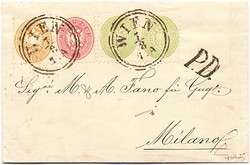 WIEN WIEN
P.D.
Sig.ri M & M. Tano fù Gugl.
Milano